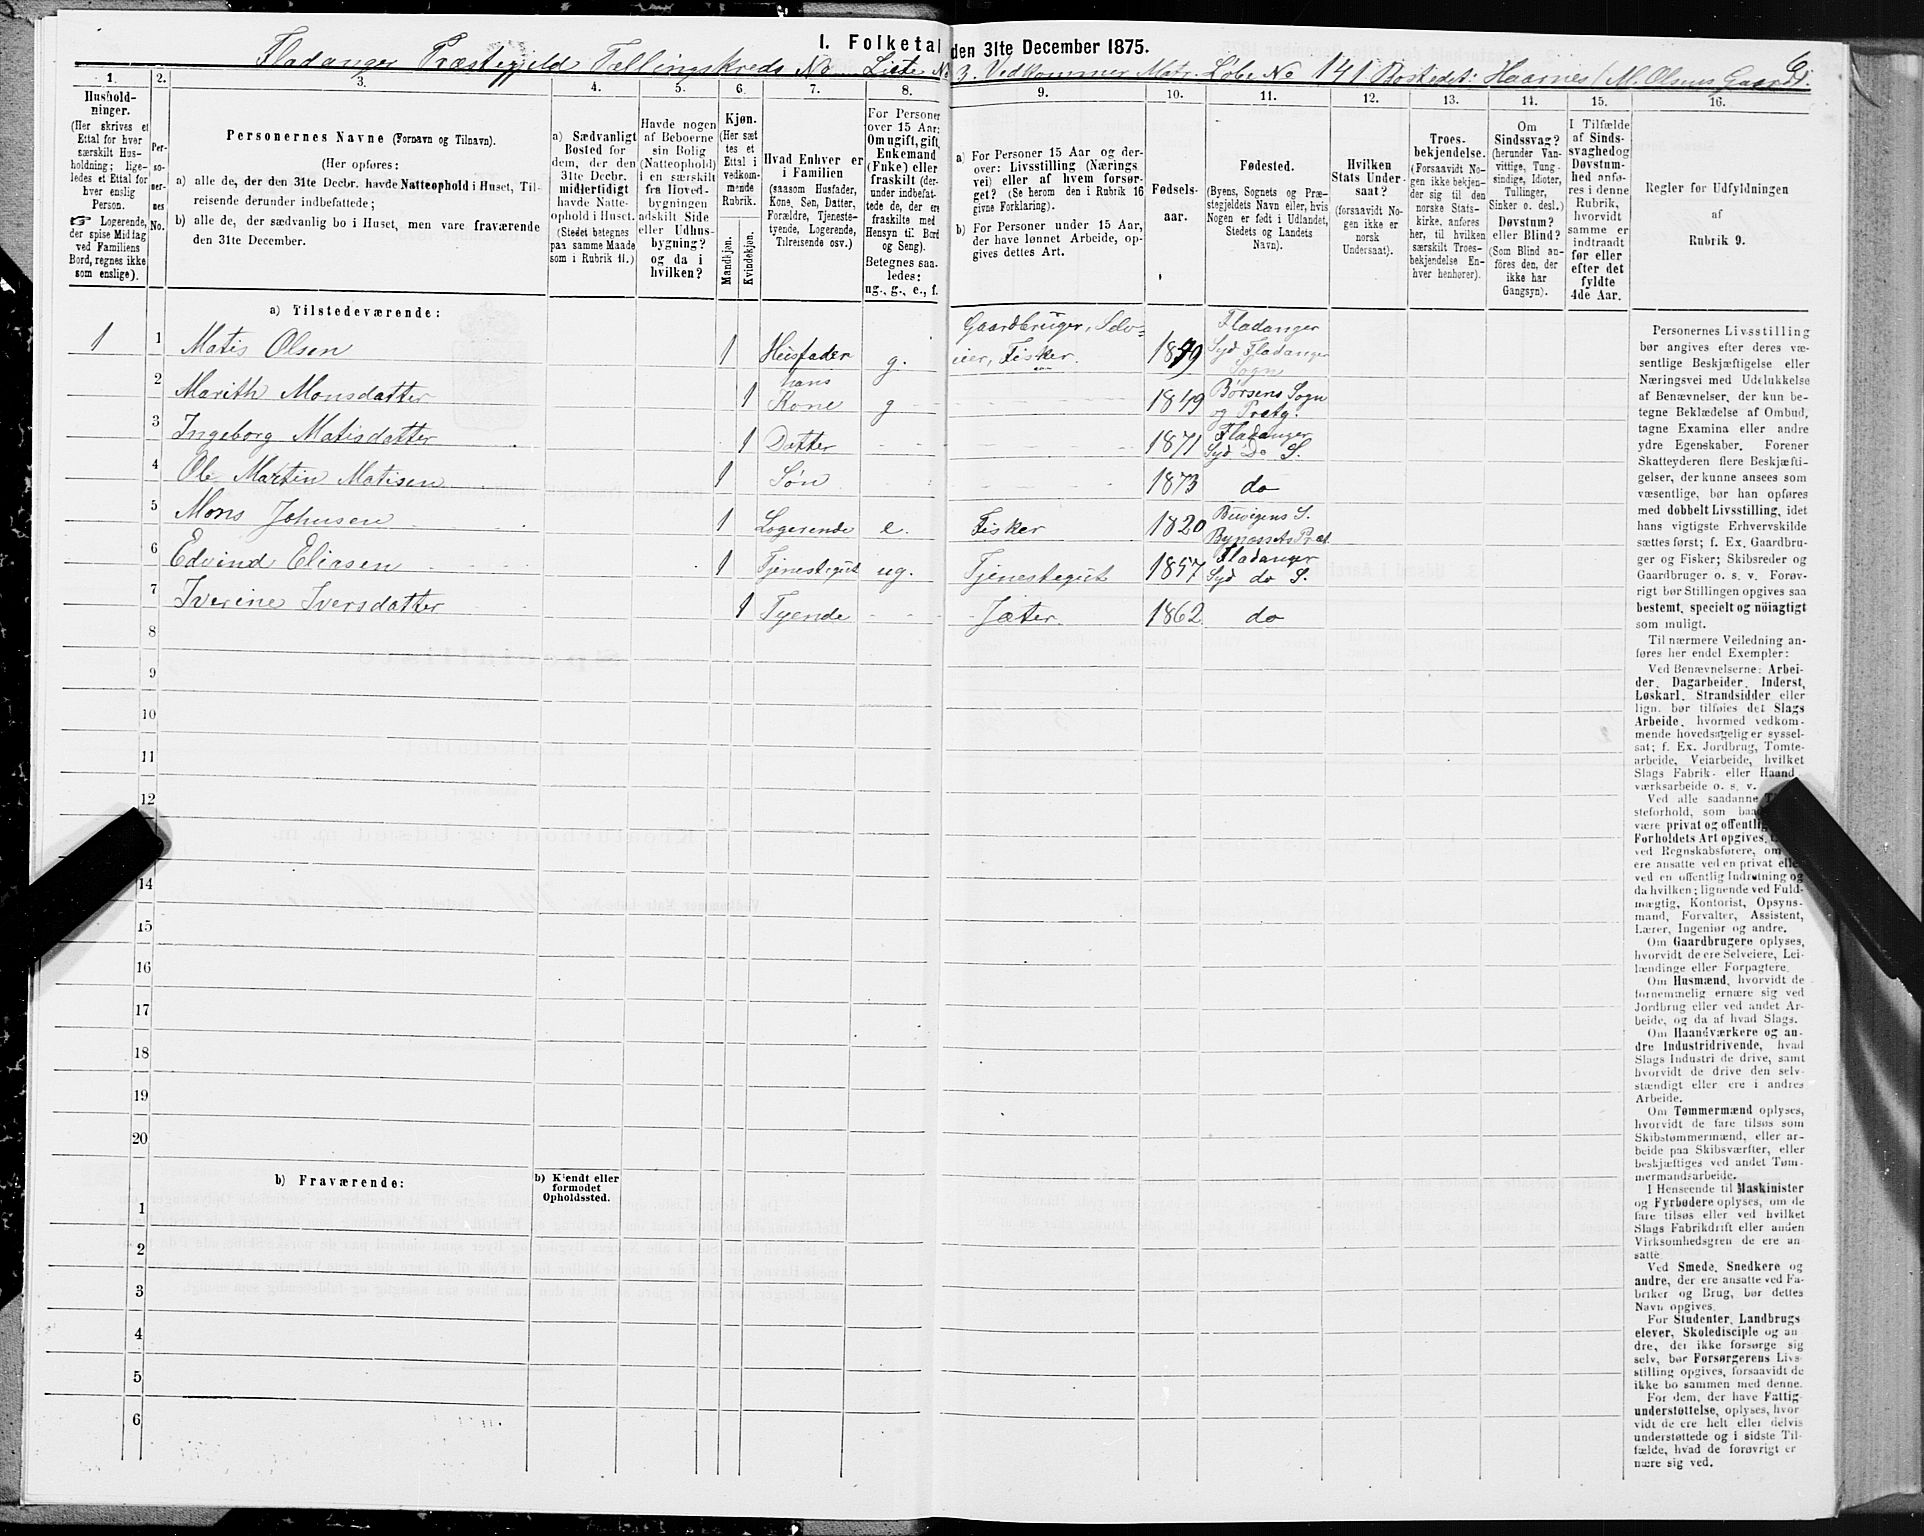 I. Folketal den 31te December 1875.
Fladanger Præstegjeld Tællingskreds No Liste No 3. Vedkommer Matr. Løbe No 141 Bostedet: Haarnes (M. Olsens Gaard).
1.
2.
3.
4.
5.
6.
7.
8.
9.
10.
11.
12.
13.
14.
15.
16.
Hushold-
ninger.
(Her skrives et
Ettal for hver
særskilt Hus-
holdning; lige-
ledes et Ettal for
hver enslig
Person.
☞ Logerende,
der spise Middag
ved Familiens
Bord, regnes ikke
som enslige).
Per-
so-
ner-
nes
No.
Personernes Navne (Fornavn og Tilnavn).
(Her opføres:
a) alle de, der den 31te Decbr. havde Natteophold i Huset, Til-
reisende derunder indbefattede;
b) alle de, der sædvanlig bo i Huset, men vare fraværende
den 31te December.
a) Sædvanligt
Bosted for
dem, der den
31te Decbr.
midlertidigt
havde Natte-
ophold i Huset.
(Stedet betegnes
paa samme Maade
som i Rubrik 11.)
Havde nogen
af Beboerne
sin Bolig
(Natteophold)
i en særskilt
fra Hoved-
bygningen
adskilt Side
eller Udhus-
bygning?
og da i
hvilken?
Kjøn.
(Her sæt
tes et
Ettal i
vedkom-
mende
Rubrik.
Mandkjøn.
Kvindekjøn.
Hvad Enhver er
i Familien
(saasom Husfader,
Kone, Søn, Datter,
Forældre, Tjeneste-
tyende, Logerende,
Tilreisende osv.)
For Personer
over 15 Aar:
Om ugift, gift,
Enkemand
(Enke) eller
fraskilt (der-
under indbefat-
tede de, der ere
fraskilte med
Hensyn til Bord
og Seng).
Betegnes saa-
ledes:
ug., g., e., f.
a) For Personer 15 Aar og der-
over: Livsstilling (Nærings-
vei) eller af hvem forsør-
get? (Se herom den i Rubrik 16
givne Forklaring).
b) For Personer under 15 Aar,
der have lønnet Arbeide, op-
gives dettes Art.
Fødsels-
aar.
Fødested.
(Byens, Sognets og Præ-
stegjeldets Navn eller, hvis
Nogen er født i Udlandet,
Stedets og Landets
Navn).
Hvilken
Stats Under-
saat?
(forsaavidt No-
gen ikke er
norsk
Undersaat).
Troes-
bekjendelse.
(Forsaavidt No-
gen ikke bekjen-
der sig til den
norske Stats-
kirke, anføres
her, til hvilken
særskilt Troes-
bekjendelse En-
hver henhører).
Om
Sindssvag?
(herunder Van-
vittige, Tung-
sindige, Idioter,
Tullinger,
Sinker o. desl.)
Døvstum?
eller Blind?
(Som Blind an-
føres den, der
ikke har
Gangsyn).
I Tilfælde
af Sinds-
svaghed og
Døvstum-
hed anfø-
res i denne
Rubrik,
hvorvidt
samme er
indtraadt
før eller
efter det
fyldte
4de Aar.
Regler for Udfyldningen
af
Rubrik 9.
a) Tilstedeværende:
1 1 Matis Olsen 1 Husfader g. Gaardbruger, Selv-
eier, Fisker. 1849 Fladanger
Syd Fladanger
Sogn
2 Marith Monsdatter 1 hans
Kone g 1849 Børsens Sogn
og Prætg.
3 Ingeborg Matisdatter 1 Datter 1871 Fladanger
Syd Do S.
4 Ole Martin Matisen 1 Søn 1873 do
5 Mons Johnsen 1 Logerende e. Fisker 1820 Buvigens S.
Bynæssets Præt
6 Edvind Eliasen 1 Tjenestegut ug. Tjenestegut 1857 Fladanger
Syd do S.
7 Iverine Iversdatter 1 Tyende Jæter. 1862 do
8
9
10
11
12
14
15
16
17
18
19
20
b) Fraværende:
b) Kjendt eller
formodet
Opholdssted.
1
2
3
4
5
6
Personernes Livsstilling
bør angives efter deres væ-
sentlige Beskjæftigelse eller
Næringsvei med Udelukkelse
af Benævnelser, der kun be-
tegne Beklædelse af Ombud,
tagne Examina eller andre
ydre Egenskaber. Forener
Skatteyderen flere Beskjæfti-
gelser, der kunne ansees som
væsentlige, bør han opføres
med dobbelt Livsstilling, idet
hans vigtigste Erhvervskilde
sættes først; f. Ex. Gaardbru-
ger og Fisker; Skibsreder og
Gaardbruger o. s. v. Forøv-
rigt bør Stillingen opgives saa
bestemt, specielt og nöiagtigt
som muligt.
Til nærmere Veiledning an-
føres her endel Exempler:
Ved Benævnelserne: Arbei-
der, Dagarbeider, Inderst,
Løskarl, Strandsidder eller
lign. bør tilføies det Slags
Arbeide, hvormed vedkom-
mende hovedsagelig er syssel-
sat; f. Ex. Jordbrug, Tomte-
arbeide, Veiarbeide, hvilket
Slags Fabrik- eller Haand-
værksarbeide o. s. v.
Ved alle saadanne
steforhold, som
være privat og offentlig
Forholdets Art opgives,
ved Regnskabsførere, om
ere ansatte ved en privat eller
ved en offentlig Indretning og
da hvilken; lignende ved Fuld-
mægtig, Kontorist, Opsyns-
mand, Forvalter, Assistent,
Lærer, Ingeniør og andre.
Om Gaardbrugere oplyses,
hvorvidt de ere Selveiere, Lei-
lændinge eller Forpagtere.
Om Husmænd, hvorvidt de
fornemmelig ernære sig ved
Jordbrug eller ved andet Ar-
beide, og da af hvad Slags.
Om Haandværkere og an-
dre Industridrivende, hvad
Slags Industri de drive, samt
hvorvidt de drive den selv-
stændigt eller ere i andres
Arbeide.
Om Tømmermænd oplyses,
hvorvidt de fare tilsøs som
Skibstømmermænd, eller ar-
beide paa Skibsværfter, eller
beskjæftiges ved andet Tøm-
mermandsarbeide.
I Henseende til Maskinister
og Fyrbødere oplyses, om de
fare tilsøs eller ved hvilket
Slags Fabrikdrift eller anden
Virksomhedsgren de ere an-
satte.
Ved Smede, Snedkere og
andre, der ere ansatte ved Fa-
briker og Brug, bør dettes
Navn opgives.
For Studenter, Landbrugs
elever, Skoledisciple og an
dre, der ikke forsørge sig
selv, bør Forsørgerens Livs-
stilling opgives, forsaavidt de
ikke bo sammen med denne.
For dem, der have Fattig-
understøttelse, oplyses, hvor-
vidt de ere helt eller delvis
understøttede og i sidste Til-
fælde, hvad de forøvrigt er
nære sig ved.